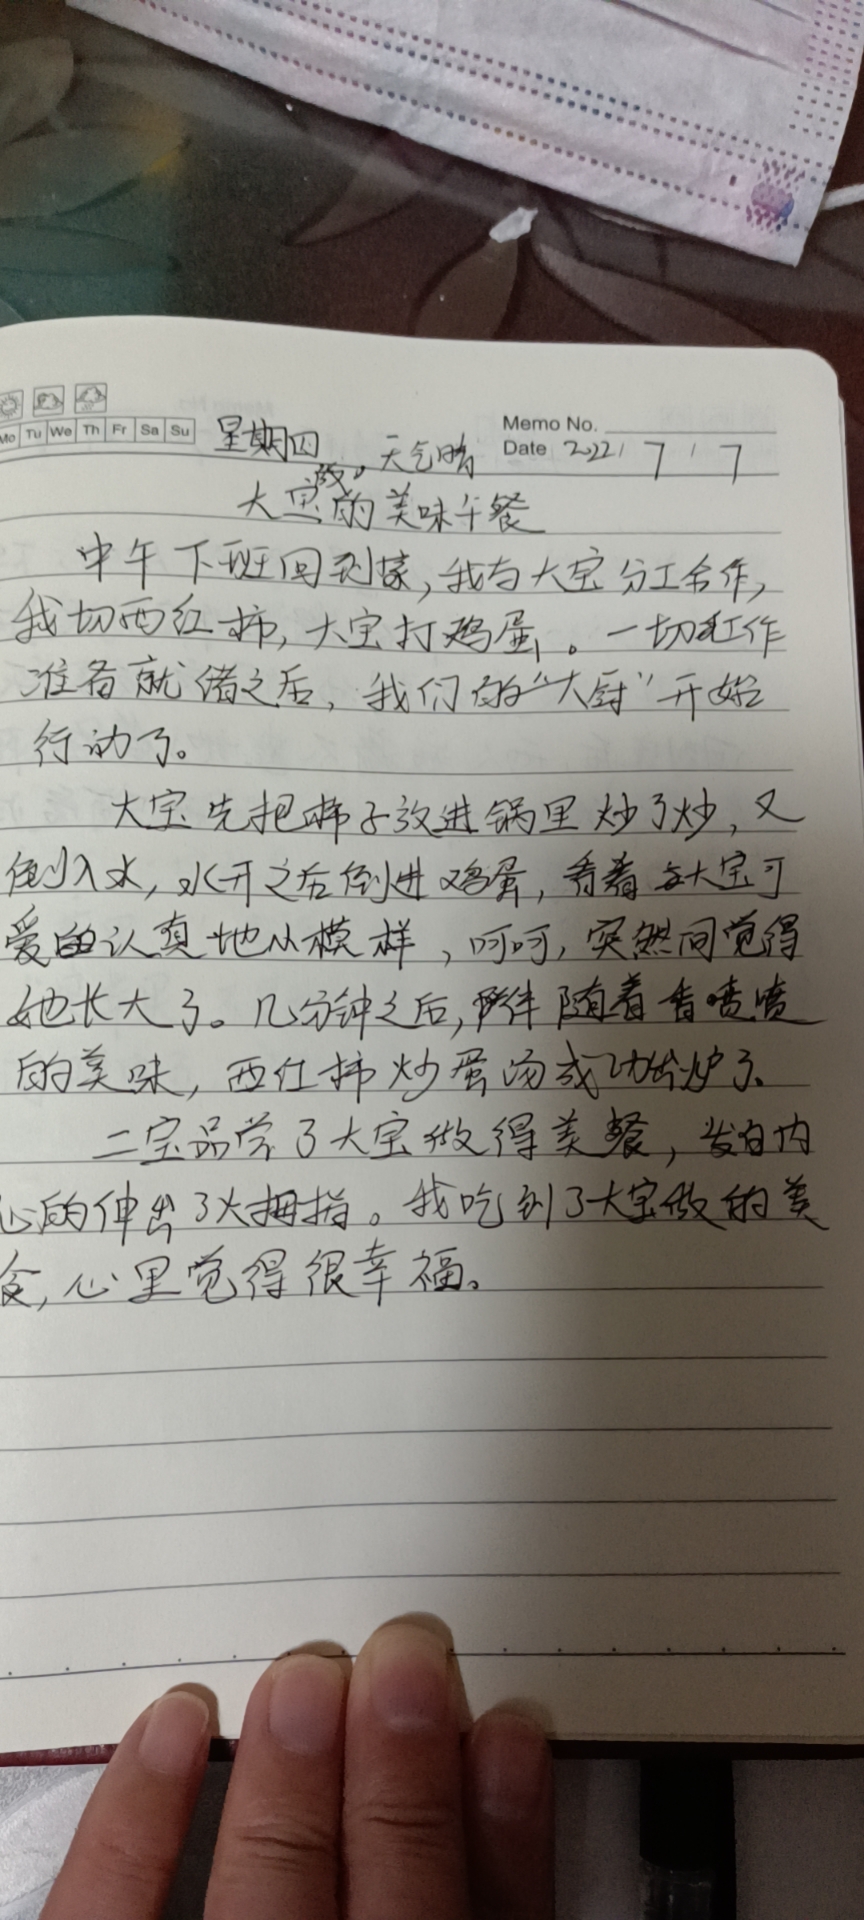 Memo No.
Mo Tu We Th Fr Sa Su 星期四 天气晴 Date 2022 / 7 / 7
大宝做的美味午餐
中午下班回到家,我与大宝分工合作,
我切西红柿,大宝打鸡蛋。一切工作
准备就绪之后,我们的“大厨”开始
行动了。
大宝先把柿子放进锅里炒了炒,又
倒入水,水开之后倒进鸡蛋,看着大宝可
爱认真地模样,呵呵,突然间觉得
她长大了。几分钟之后,伴随着香喷喷
的美味,西红柿炒蛋汤成功出炉了。
二宝品尝了大宝做得美餐,发自内
心的伸出了大拇指。我吃到了大宝做的美
食,心里觉得很幸福。